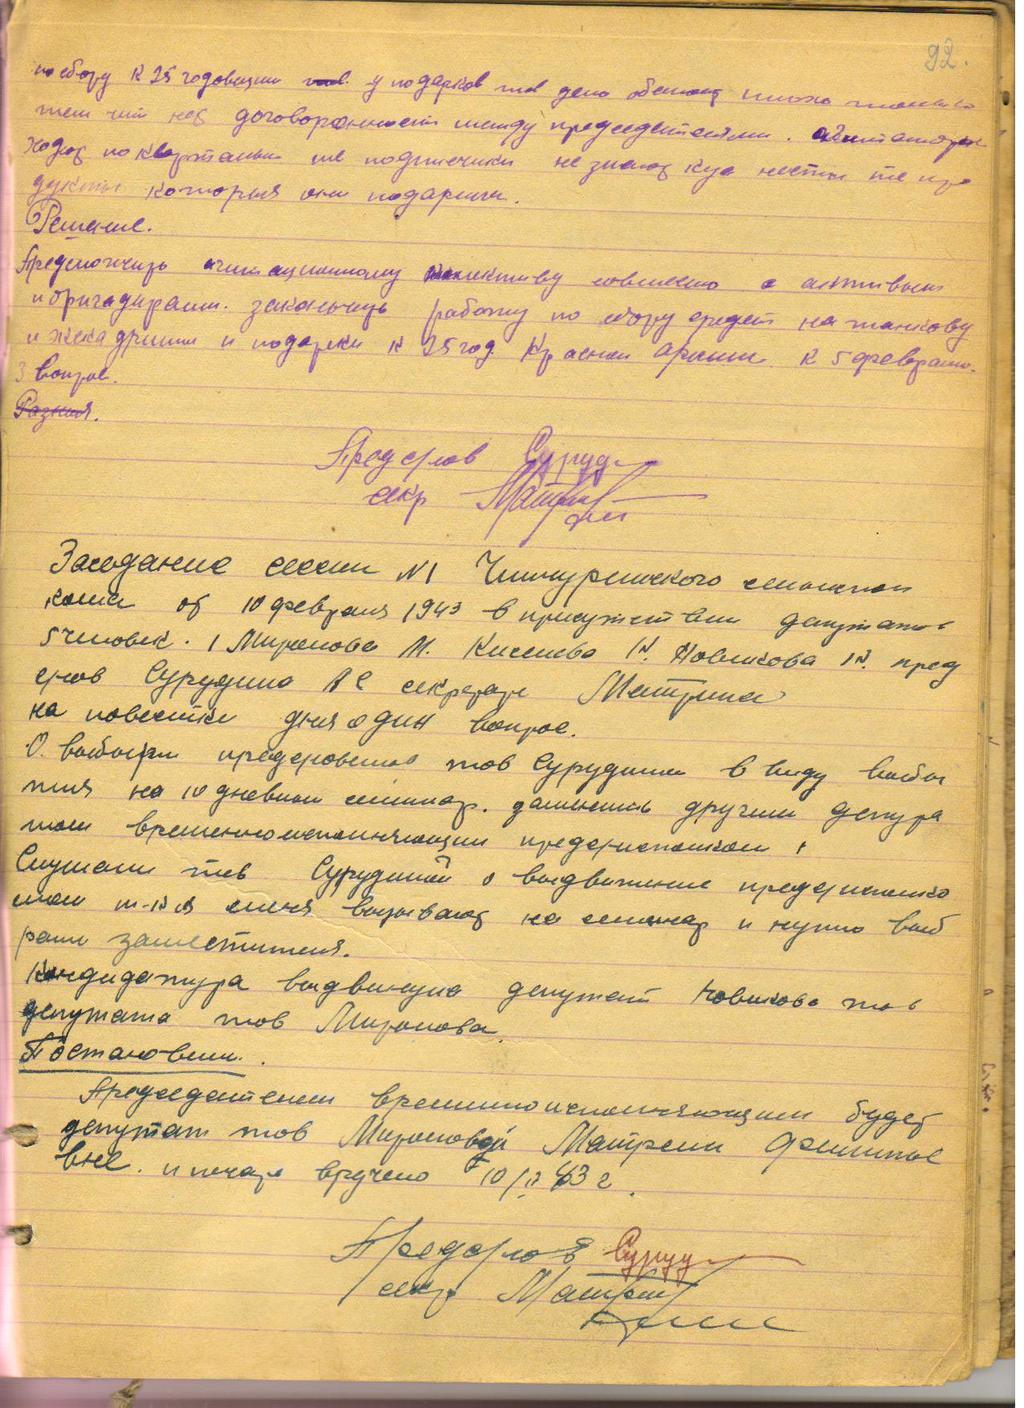 92.
по сбору к 25 годовщини тов. у подарков тов дело обстоит плохо только
тем что нет договоренности между председателями. агитаторы
ходят по кварталам те подписчики не знают куда нести те про
дукты которыя они подарили.
Решение.
Предложить агитационному коллективу совместно с активом
и бригадирами. закончить работу по сбору средств на танкову
и эскадрилии и подарки к 25 год Красной армии к 5 февралю.
3 вопрос.
Разныя.
Пред с/сов Суруд
секр Матрин
Заседание сессии N1 сельскои
кома от 10 февраля 1943 в присутствии депутатов
5 человек. 1 Миронова М. Киселева Новикова пред
с/сов Сурудина секретарь Матрина
на повестки дня один вопрос.
О выборах пред с/совета тов Сурудина в виду выбы
тия на 10 дневный семинар. другим депута
том временно исполняющии пред
Слушали тов Сурудиной о выдвижение пред
меня вызывают на семинар и нужно выб
рать заместителя.
Кандидатура выдвинута депутат Новикова тов
депутата тов Миронова.
Постановили.
Председателем временно исполняющим будет
депутат тов Мироновой Матрени Филипье
вне. и печать вручено 10/II 43 г.
Пред с/сов Суруд
секр Матрин